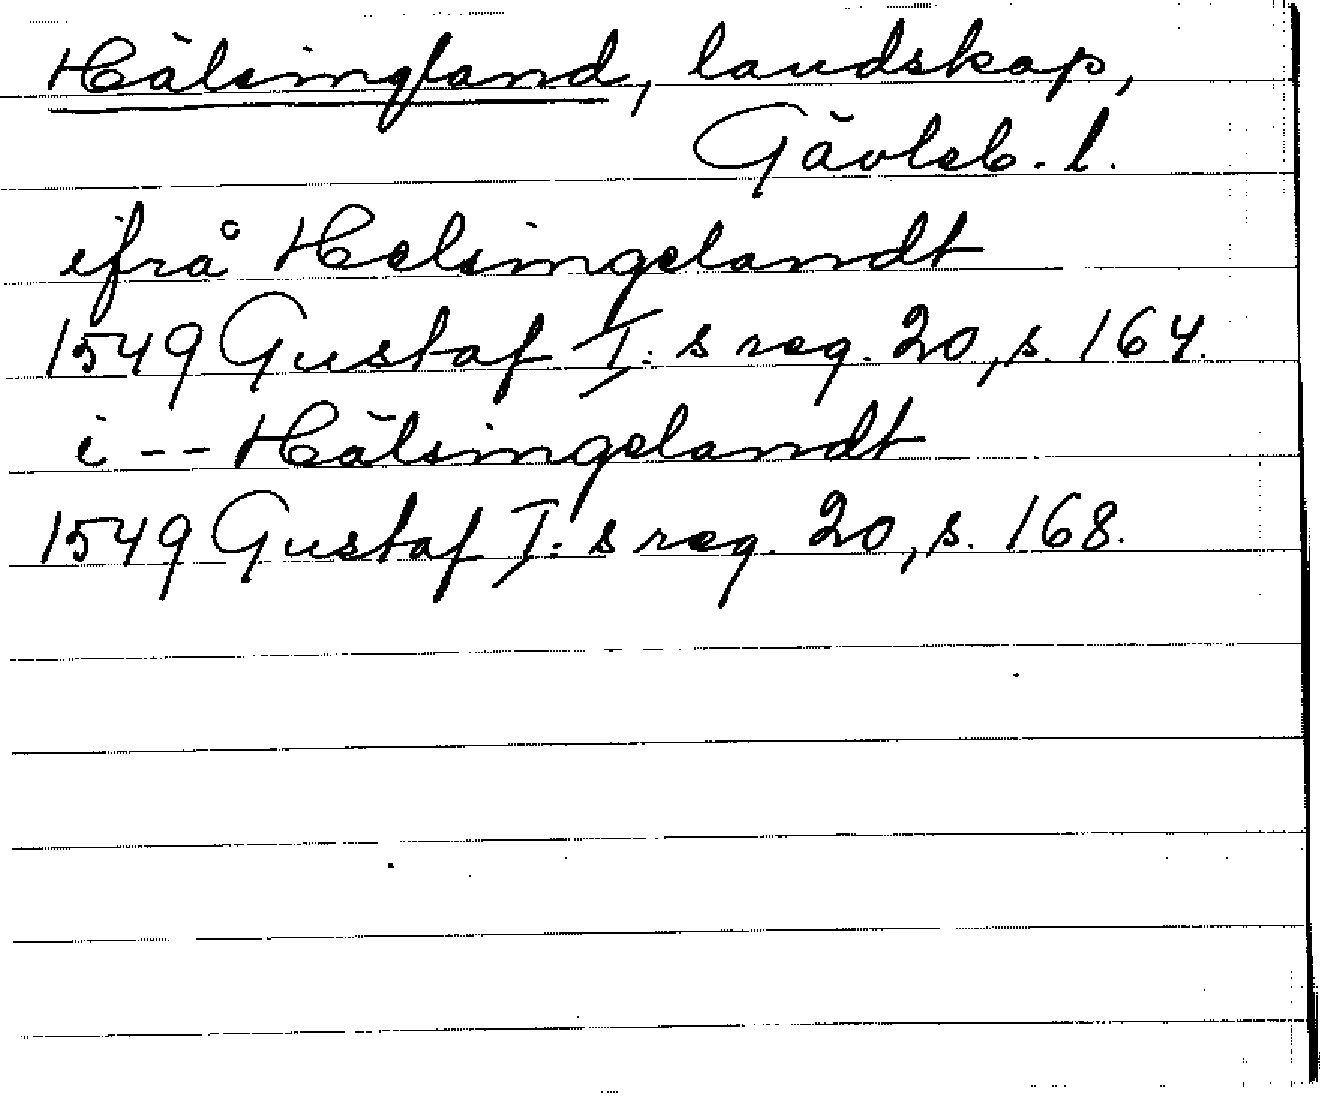 Hälsingland, landskap,
Gävleb. l.
ifrå Helsingelandt
1549 Gustaf I:s reg. 20, s. 164.
i -- Hälsingelandt
1549 Gustaf I:s reg. 20, s. 168.